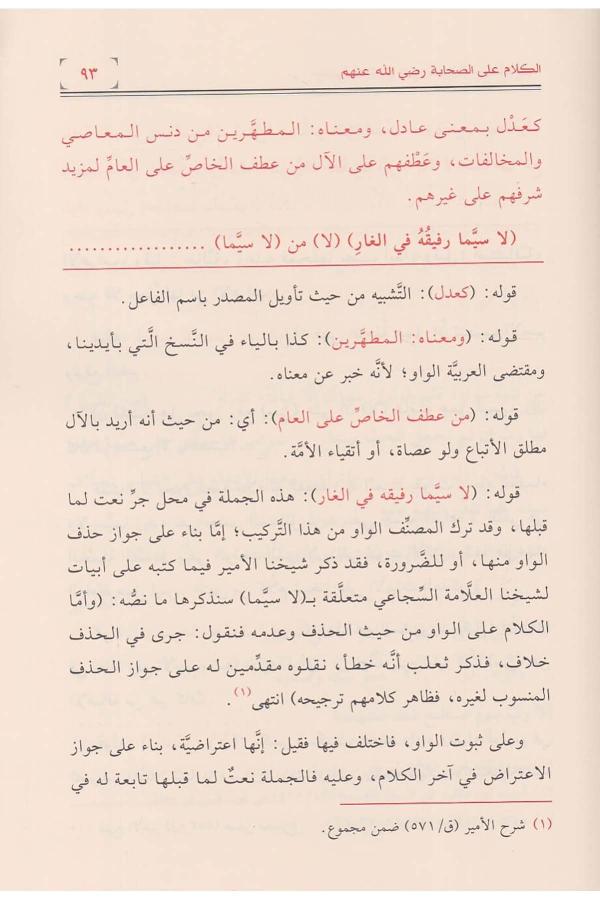 الكلام على الصحابة رضي الله عنهم
٩٣
كعَدْل بمعنى عادل، ومعناه: المطهَّرين من دنس المعاصي
والمخالفات، وعَطْفهم على الآل من عطف الخاصِّ على العامِّ لمزيد
شرفهم على غيرهم.
(لا سيَّما رفيقُهُ في الغار) (لا) من (لا سيَّما) ..................
قوله: (كعدل): التَّشبيه من حيث تأويل المصدر باسم الفاعل.
قوله: (ومعناه: المطهَّرين): كذا بالياء في النَّسخ الَّتي بأيدينا،
ومقتضى العربيَّة الواو؛ لأنَّه خبر عن معناه.
قوله: (من عطف الخاصِّ على العام): أي: من حيث أنه أريد بالآل
مطلق الأتباع ولو عصاة، أو أتقياء الأمَّة.
قوله: (لا سيَّما رفيقه في الغار): هذه الجملة في محل جرِّ نعت لما
قبلها، وقد ترك المصنِّف الواو من هذا التَّركيب؛ إمَّا بناء على جواز حذف
الواو منها، أو للضَّرورة، فقد ذكر شيخنا الأمير فيما كتبه على أبيات
لشيخنا العلَّامة السِّجاعي متعلَّقة بـ(لا سيما) سنذكرها ما نصُّه: (وأمَّا
الكلام على الواو من حيث الحذف وعدمه فنقول: جرى في الحذف
خلاف، فذكر ثعلب أنَّه خطأ، نقلوه مقدِّمين له على جواز الحذف
المنسوب لغيره، فظاهر كلامهم ترجيحه) انتهى(١).
وعلى ثبوت الواو، فاختلف فيها فقيل: إنَّها اعتراضيَّة، بناء على جواز
الاعتراض في آخر الكلام، وعليه فالجملة نعتٌ لما قبلها تابعة له في
(١) شرح الأمير (ق/٥٧١) ضمن مجموع.